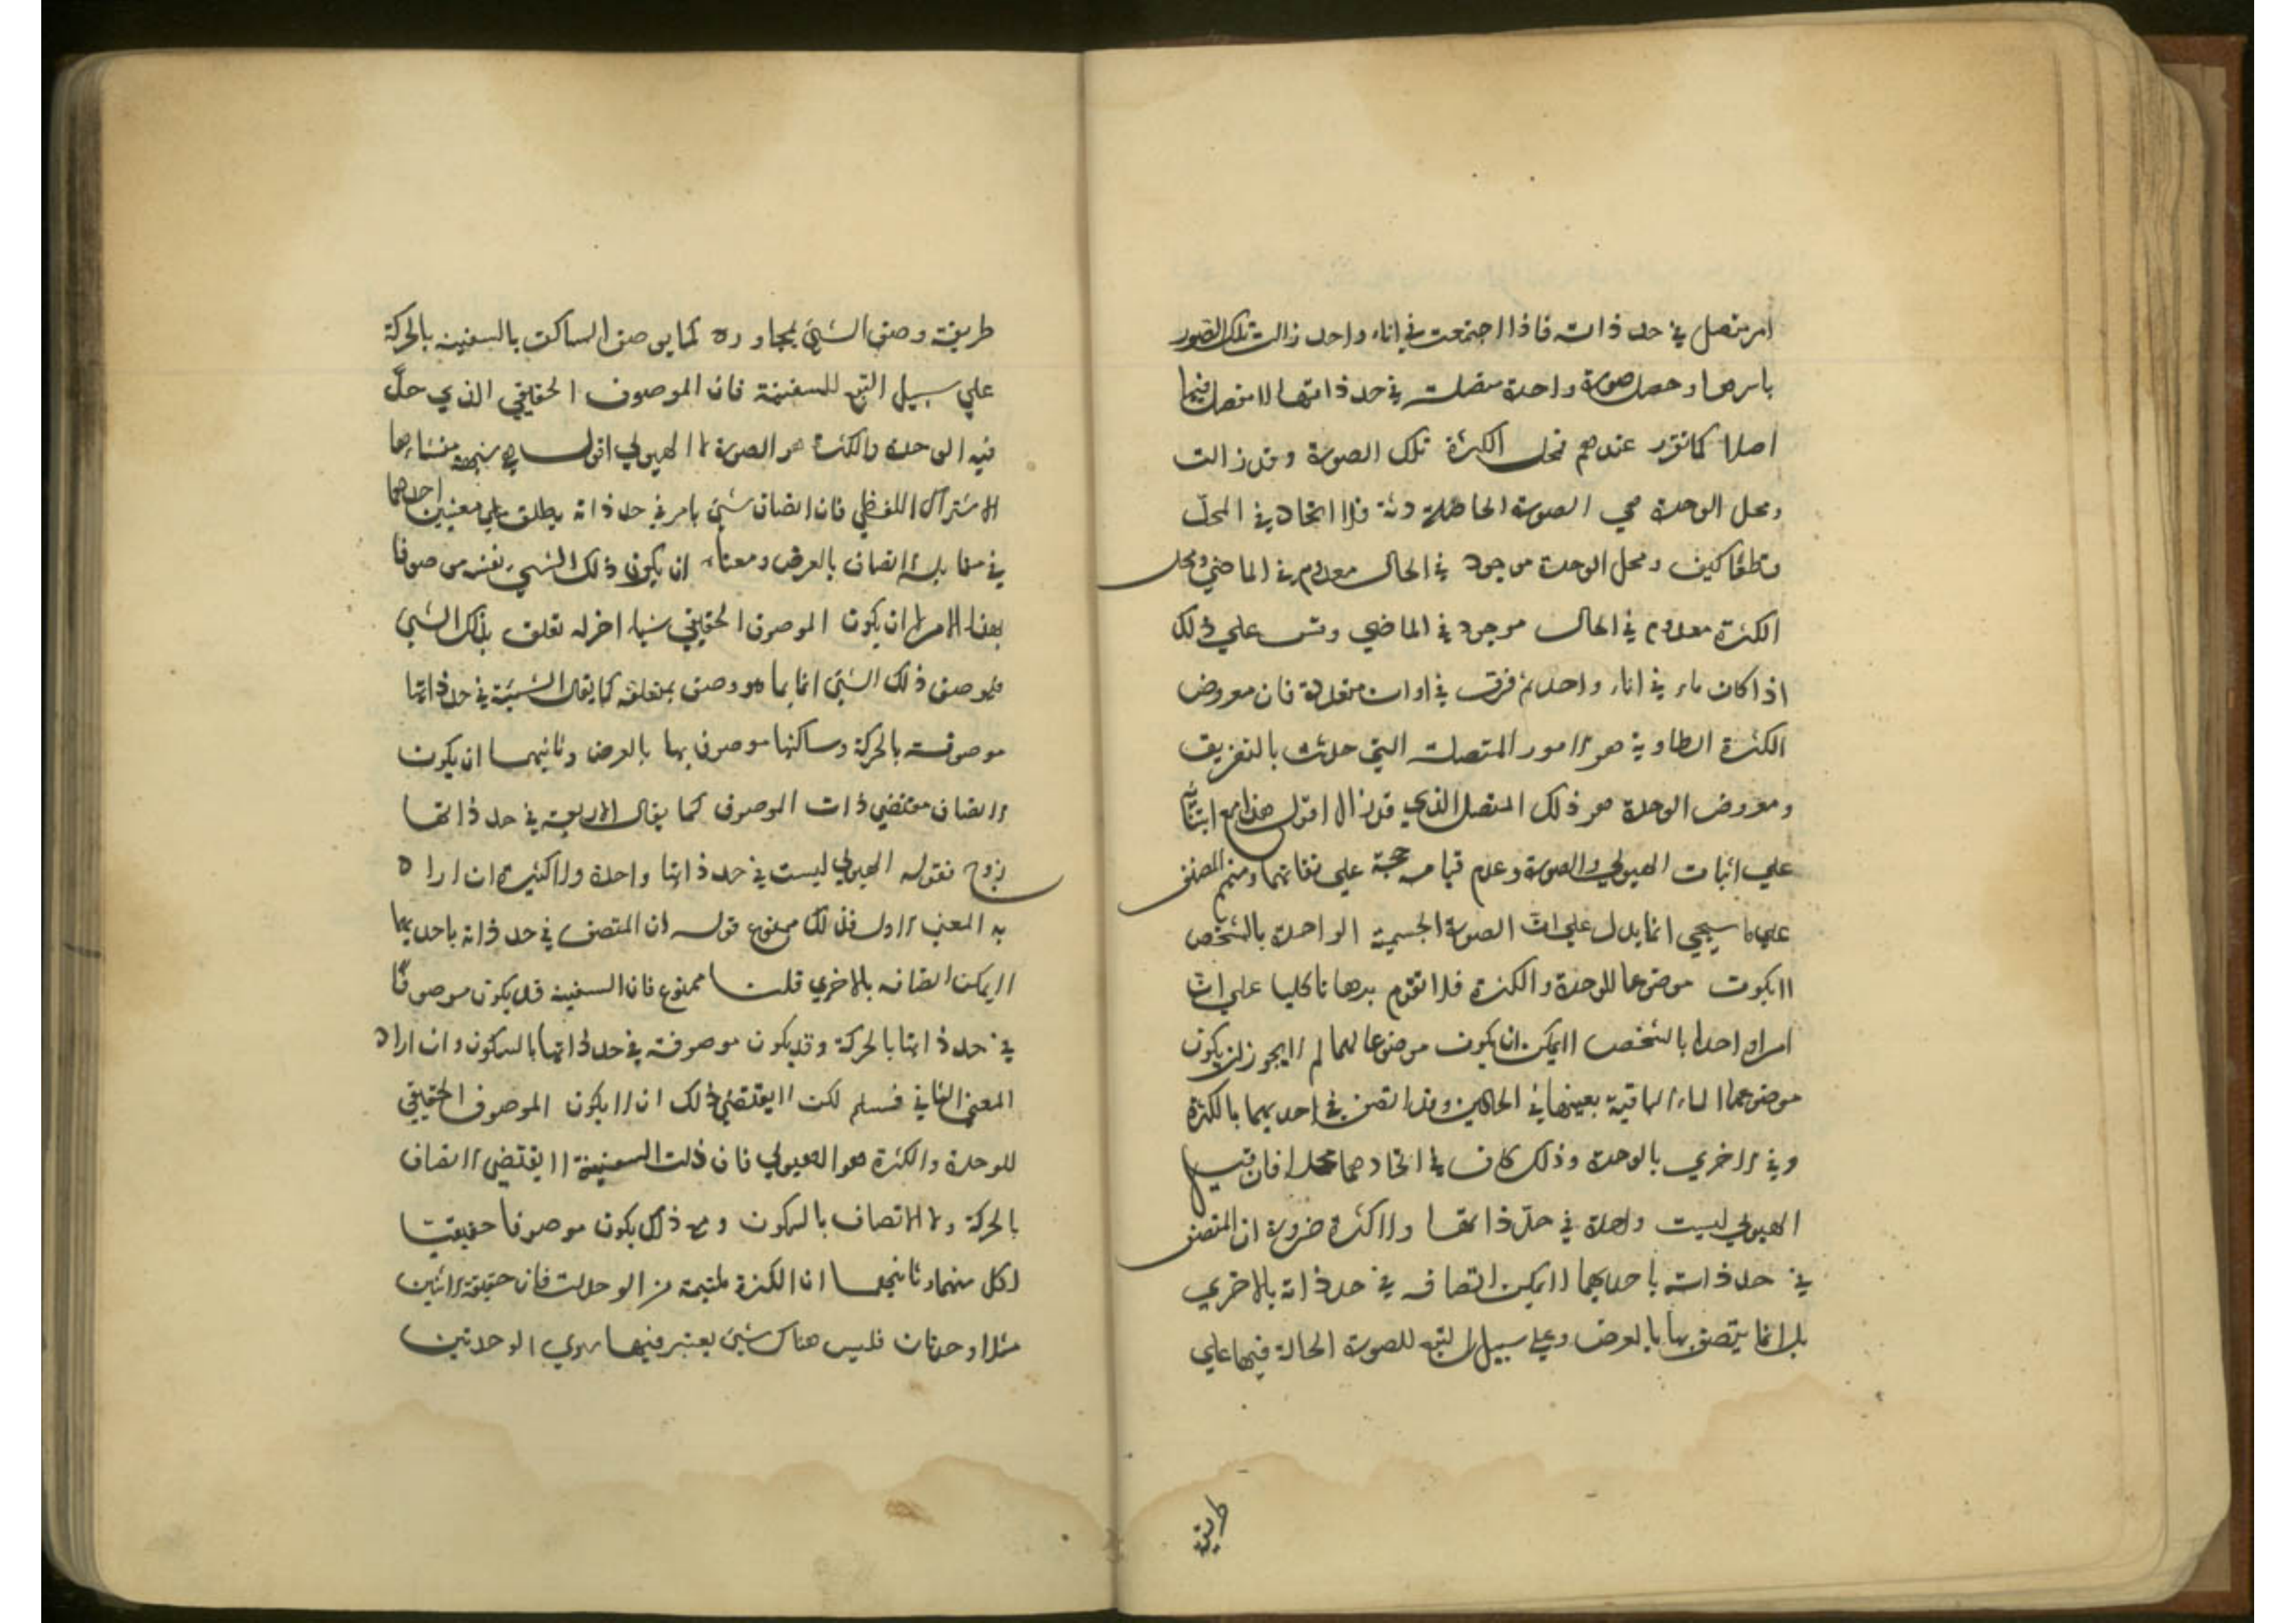 امر متصل في حد ذاته فاذا اجتمعت في اناء واحد زالت تلك الصور
باسرها وحصل صورة واحدة متصلة في حد ذاتها لا مفصل فيها
اصلا كما تقرر عندهم فمحل الكثرة تلك الصورة وقد زالت
ومحل الوحدة هي الصورة الحاصلة فلا اتحاد في المحل
قطعا كيف ومحل الوحدة موجود في الحال معدوم في الماضي ومحل
الكثرة معدوم في الحال موجود في الماضي وقس علي ذلك
اذا كان ماء في اناء واحد ثم فرق في اوان متعددة فان معروض
الكثرة الطارية هو الامور المتصلة التي حدثت بالتفريق
ومعروض الوحدة هو ذلك المتصل الذي قد زال اقول هذا مع ابتنائه
علي اثبات الهيولي والصورة وعدم قيام حجة علي نفاتهما ومنهم المصنف
علي ما سيجي انما يدل علي ان الصورة الجسمية الواحدة بالشخص
لا يكون موضوعا للوحدة والكثرة فلا تقوم برهانا كليا علي ان
امرا واحدا بالشخص لا يمكن ان يكون موضوعا لهما لم لا يجوز ان يكون
موضوعهما الباقية بعينها في الحالين وقد اتصف في احديهما بالكثرة
وفي الاخري بالوحدة وذلك كاف في اتحادهما محلا فان قيل
الهيولي ليست واحدة في حد ذاتها ولا كثرة ضرورة ان المتصف
في حد ذاته باحديهما لا يمكن اتصافه في حد ذاته بالاخري
بل انما يتصف بها بالعرض وعلي سبيل التبع للصورة الحالة فيها علي
طريقة
طريقة وصف الشيئ بمجاوره كما يوصف الساكن بالسفينه بالحركة
علي سبيل التبع للسفينة فان الموصوف الحقيقي الذي حل
فيه الوحدة والكثرة هو الصورة لا الهيولي اقول شبهة منشاءها
الاشتراك اللفظي فان اتصاف شيئ بامر في حد ذاته يطلق علي معنيين احدهما
في مقابلة اتصاف بالعرض ومعناه ان يكون ذلك الشيء نفسه موصوفا
بهذا الامر لا ان يكون الموصوف الحقيقي شياء اخر له تعلق بذلك الشيئ
فيوصف ذلك الشيئ انما بما هو وصف بمتعلقه كما يقال السفينة في حد ذاتها
موصوفة بالحركة وساكنها موصوف بها بالعرض وثانيهما ان يكون
الاتصاف مقتضي ذات الموصوف كما يقال الاربعة في حد ذاتها
زوج فقوله الهيولي ليست في حد ذاتها واحدة ولا كثيرة ان اراد
به المعني الاول فذلك ممنوع قوله ان المتصف في حد ذاته باحديهما
لا يمكن اتصافه بالاخري قلنا ممنوع فان السفينة قد يكون موصوفا
في حد ذاتها بالحركة وقد يكون موصوفة في حد ذاتها بالسكون وان اراد
المعني الثاني فمسلم لكن لا يقتضي ذلك ان لا يكون الموصوف الحقيقي
للوحدة والكثرة هو الهيولي فان ذات السفينة لا يقتضي الاتصاف
بالحركة ولا الاتصاف بالسكون ومع ذلك يكون موصوفا حقيقيا
لكل منهما وثانيهما ان الكثرة ملتئمة من الوحدات فان حقيقة الاثنين
مثلا وحدتان فليس هناك شيئ يعتبر فيها سوي الوحدتين